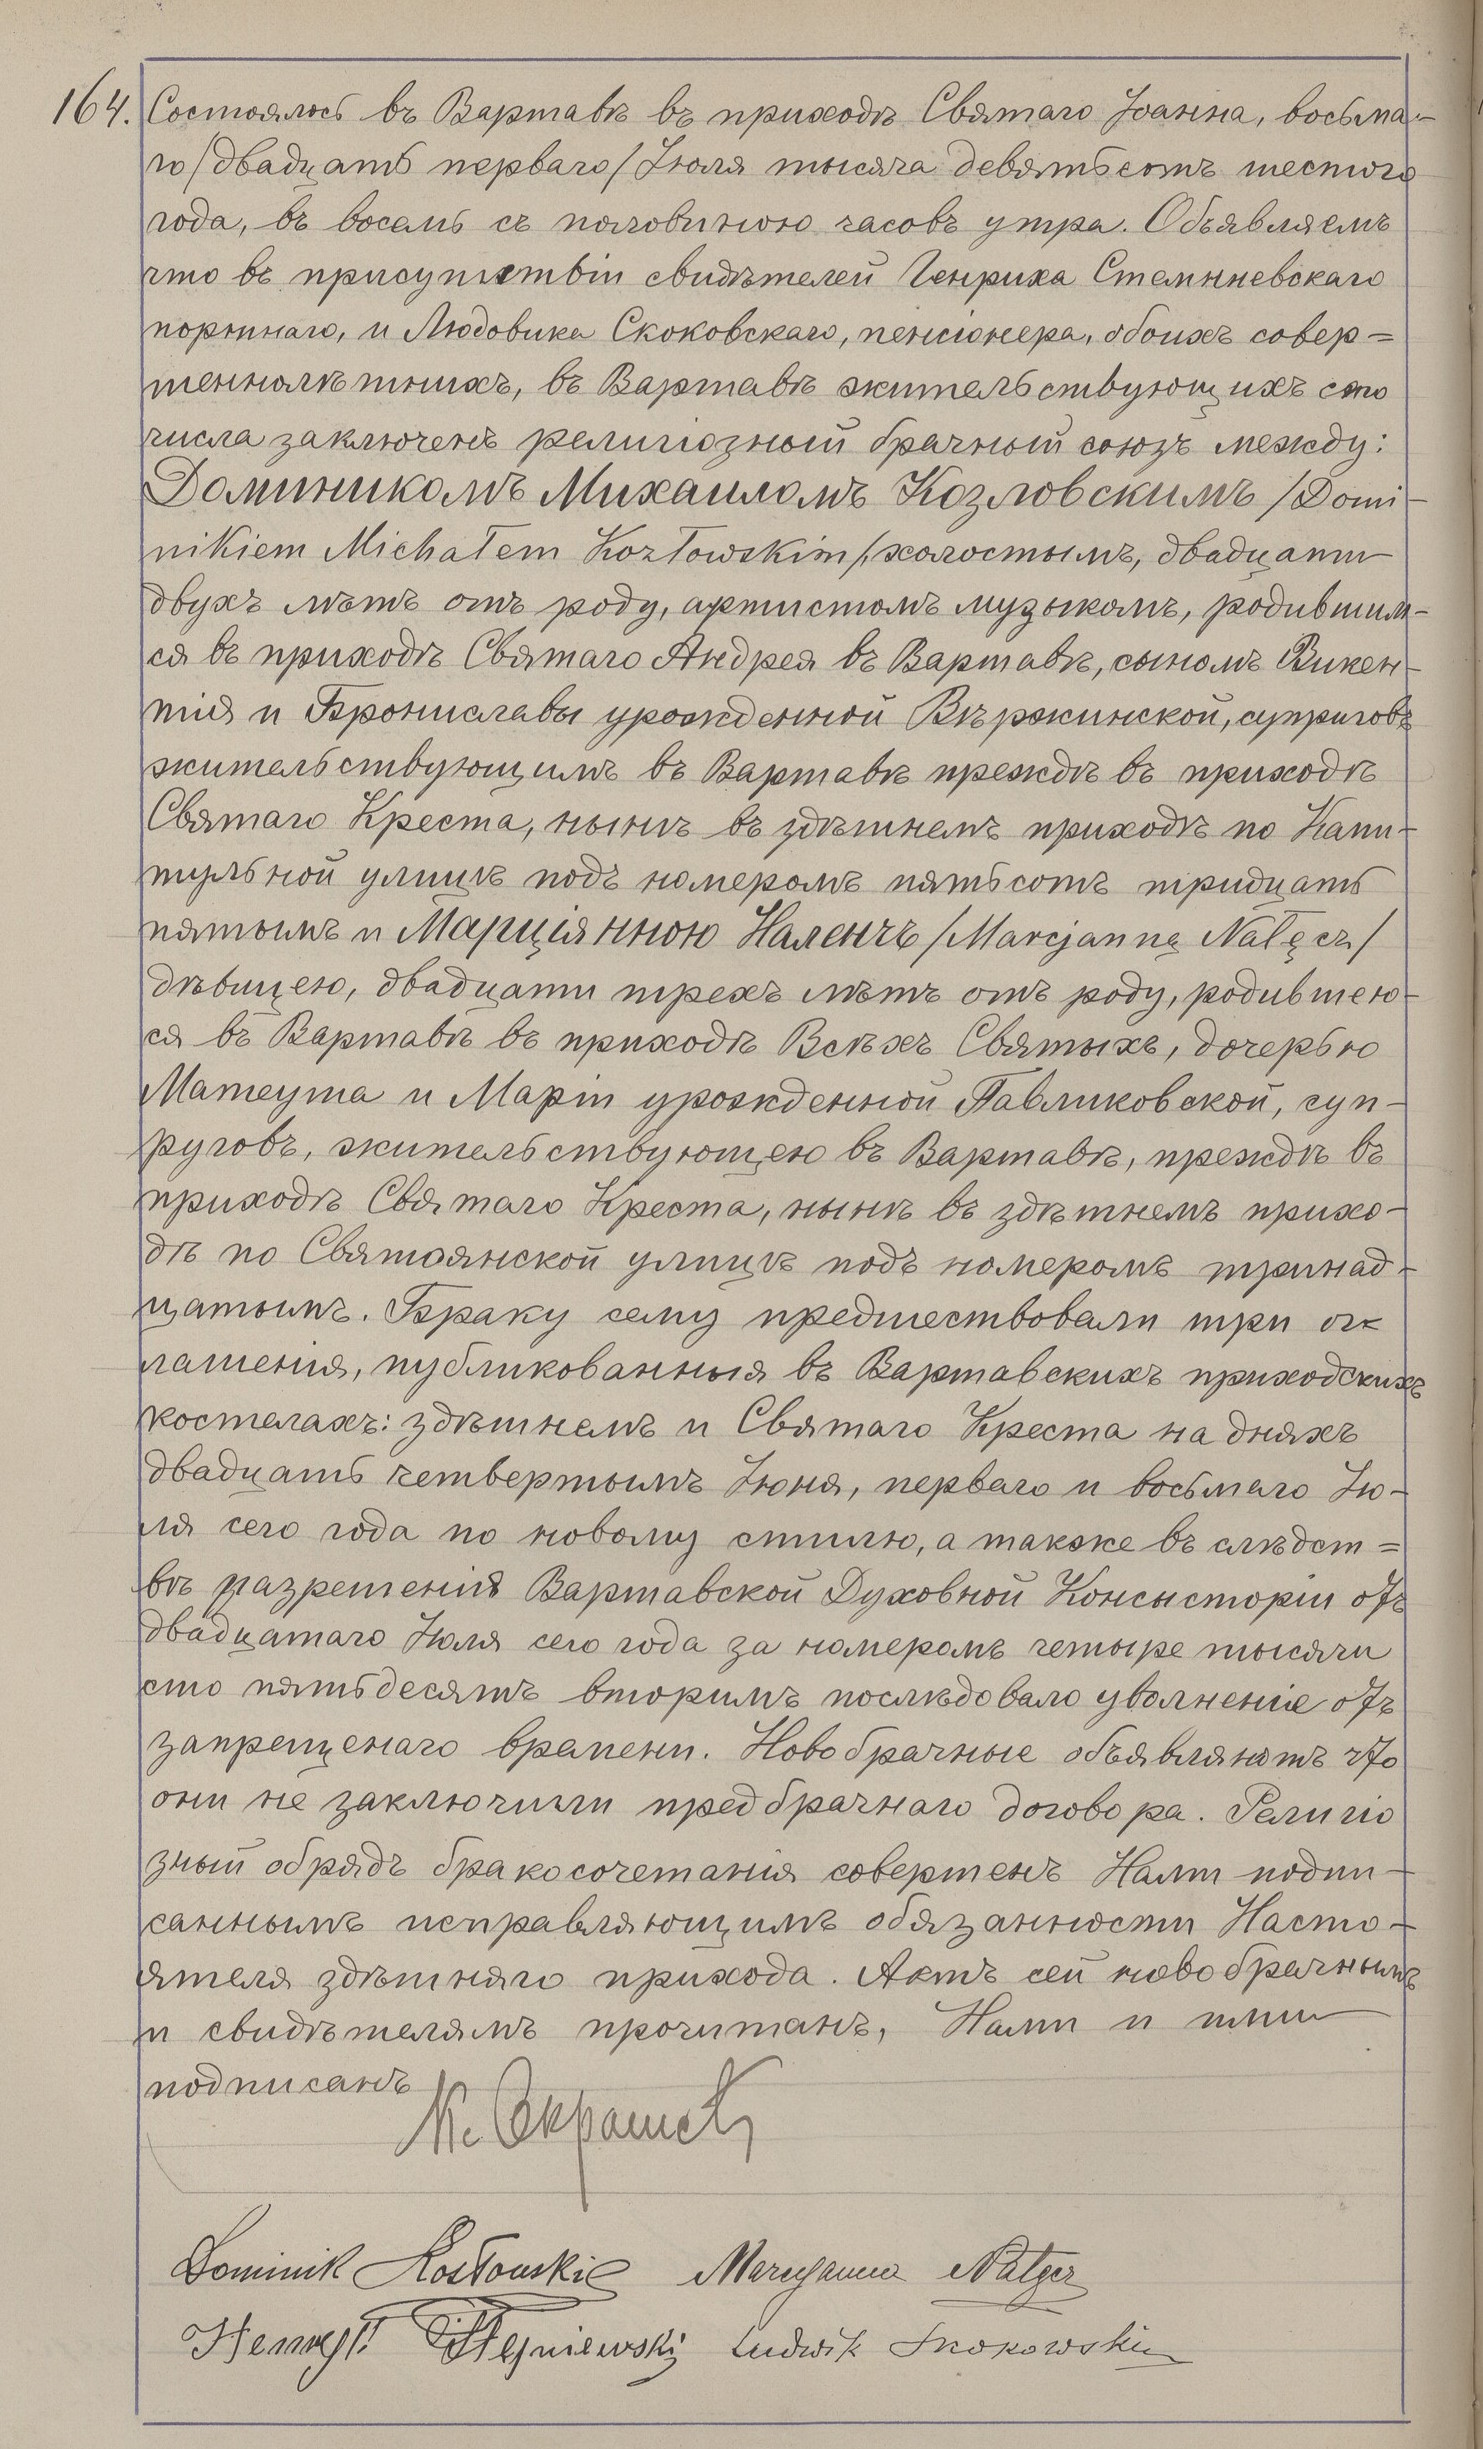 164. Состоялось въ Варшавѣ въ приходѣ Святаго Іоанна, восьма-
го /двадцать перваго/ Іюля тысяча девятьсотъ шестого
года, въ восемь съ половиною часовъ утра. Объявляемъ
что въ присутствіи свидѣтелей Генриха
портнаго, и Людовика Скоковскаго, пенсіонера, обоихъ совер=
шеннолѣтнихъ, въ Варшавѣ жительствующихъ сего
числа заключенъ религіозный брачный союзъ между:
Доминикомъ Михаиломъ Козловскимъ /Domi-
nikiem Michałem Kozłowskim/, холостымъ, двадцати
двухъ лѣтъ отъ роду, артистомъ музыкомъ, родившим-
ся въ приходѣ Святаго Андрея въ Варшавѣ, сыномъ Викен-
тія и Брониславы урожденной Вѣржинской, супруговъ
жительствующимъ въ Варшавѣ прежде въ приходѣ
Святаго Креста, нынѣ въ здѣшнемъ приходѣ по Капи-
тульной улицѣ подъ номеромъ пятьсотъ тридцать
пятымъ и Марціянною Наленчъ /Marcjanną Nałęcz/
дѣвицею, двадцати трехъ лѣтъ отъ роду, родившею-
ся въ Варшавѣ въ приходѣ Всѣхъ Святыхъ, дочерью
Матеуша и Маріи урожденной Павликовской, суп-
руговъ, жительствующею въ Варшавѣ, преждѣ въ
приходѣ Святаго Креста, нынѣ въ здѣшнемъ прихо-
дѣ по Святоянской улицѣ подъ номеромъ тринад-
цатымъ. Браку сему предшествовали три ог
лашенія, публикованныя въ Варшавскихъ приходскихъ
костелахъ: здѣшнемъ и Святаго Креста на дняхъ
двадцать четвертымъ Іюня, перваго и восьмаго Ію-
ля сего года по новому стилю, а также въ слѣдст=
вѣ разрешенія Варшавской Духовной Консысторіи отъ
двадцатаго Іюля сего года за номеромъ четыре тысячи
сто пятьдесятъ вторимъ последовало уволненіе отъ
запрещенаго времени. Новобрачные объявляютъ что
они не заключили предбрачнаго договора. Религіо
зный обрядъ бракосочетанія совершенъ Нами подпи-
саннымъ исправляющимъ обязанности Насто-
ятеля здѣшняго прихода. Актъ сей новобрачнымъ
и свидѣтелямъ прочитанъ, Нами и ими
подписанъ
Dominik Kozłowski Marcyanna Nałęcz
Henryk Ludwik Skokowski